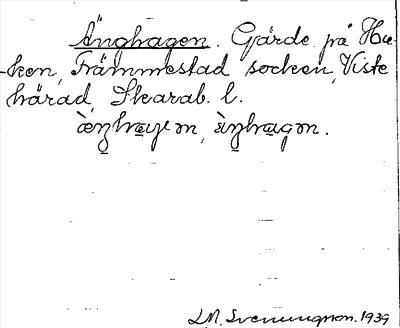 Änghagen. Gärde på Hu-
ken, Främmestad socken, Viste
härad, Skarab. l.
L.M. Svenungsson. 1939